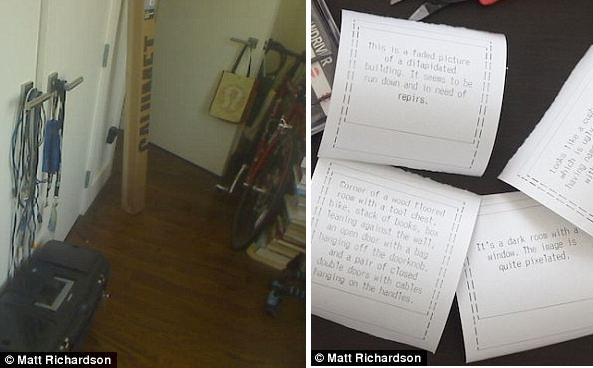 CALUMET
© Matt Richardson
This is a faded picture
of a dilapidated
building. It seems to be
run down and in need of
repirs.
Looks like a
which is
having
with
Corner of a wood floored
room with a tool chest,
bike, stack of books, box
leaning against the wall,
an open door with a bag
hanging off the doorknob,
and a pair of closed
double doors with cables
hanging on the handles.
It's a dark room with a
window. The image is
quite pixelated.
© Matt Richardson